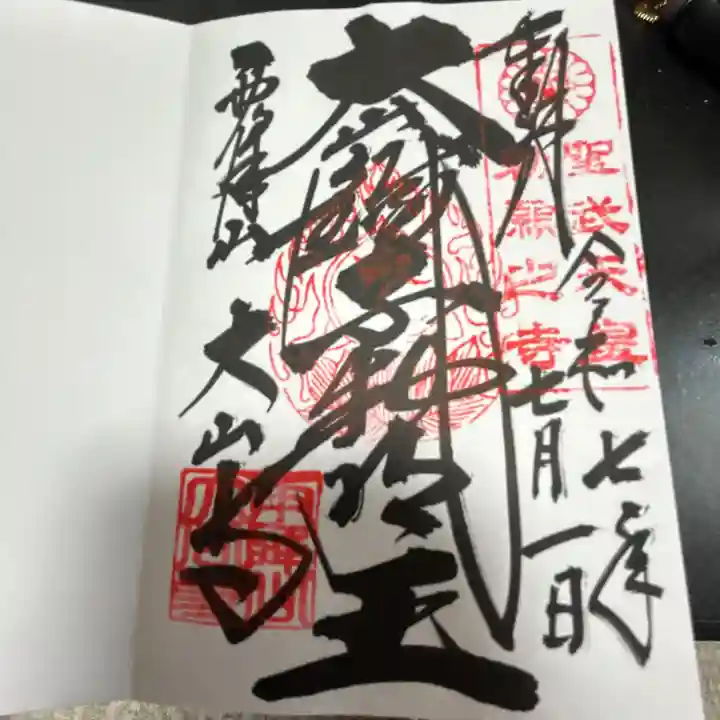 奉拝
令和七年
七月一日
聖武天皇
勅願之寺
大山鐵不動明王
雨降山
大山寺